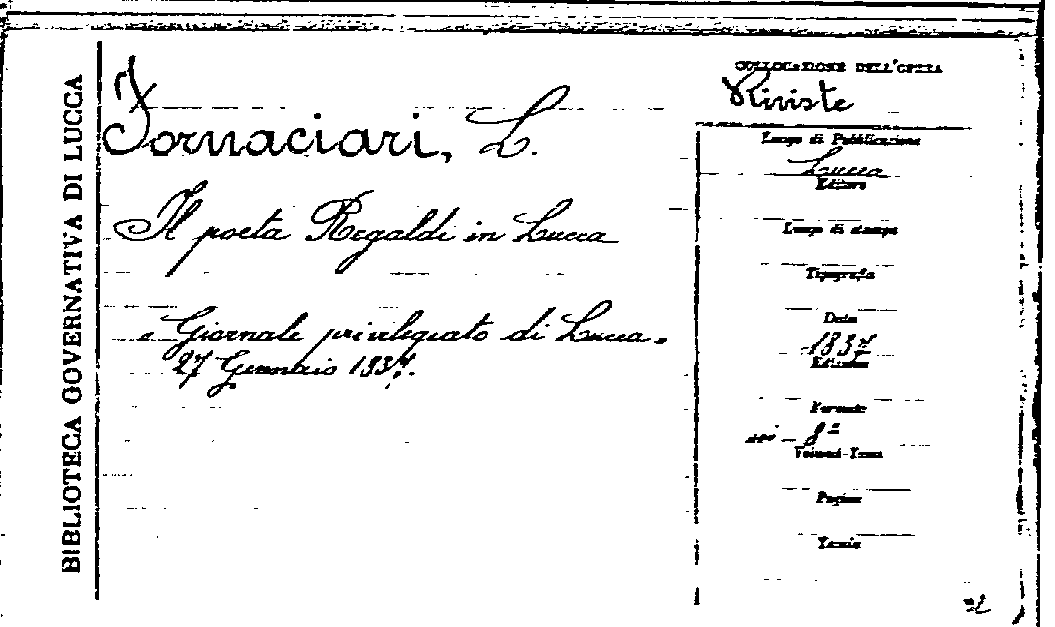 BIBLIOTECA GOVERNATIVA DI LUCCA
Fornaciari, L.
Il poeta Regaldi in Lucca
"Giornale privilegiato di Lucca"
27 Gennaio 1837.
COLLOCAZIONE DELL'OPERA
Riviste
Luogo di Pubblicazione
Lucca
Editore
Luogo di stampa
Tipografia
Data
1837
Edizione
Formato
8º
Volumi-Tomi
Pagine
Tavole